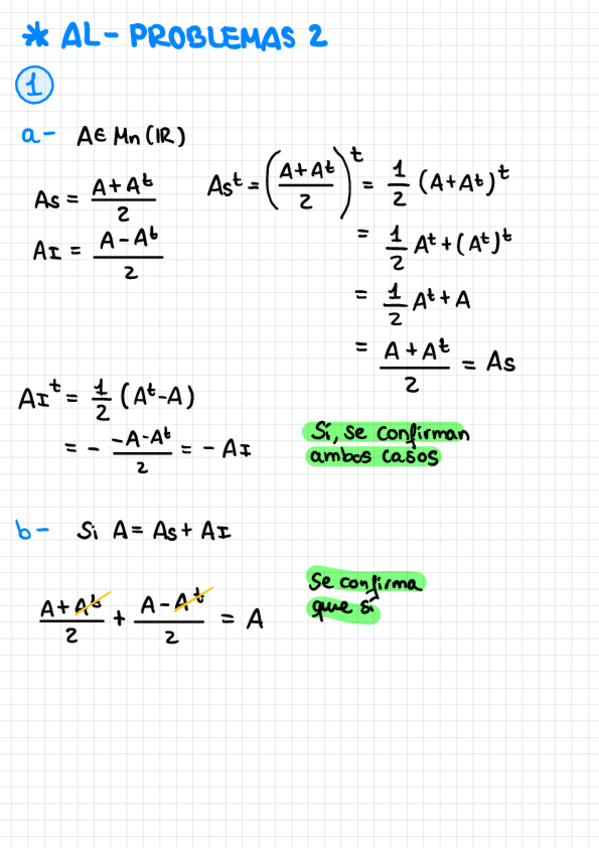 * AL- PROBLEMAS 2
1
a- A∈ Mn (IR)
As = (A + Aᵗ)/2
AI = (A - Aᵗ)/2
Asᵗ = ((A + Aᵗ)/2)ᵗ = 1/2 (A+Aᵗ)ᵗ
= 1/2 Aᵗ + (Aᵗ)ᵗ
= 1/2 Aᵗ + A
= (A + Aᵗ)/2 = As
AIᵗ = 1/2 (Aᵗ-A)
= - (-A-Aᵗ)/2 = - AI
Sí, se confirman
ambos casos
b- Si A = As + AI
(A + Aᵗ)/2 + (A - Aᵗ)/2 = A
Se confirma
que sí